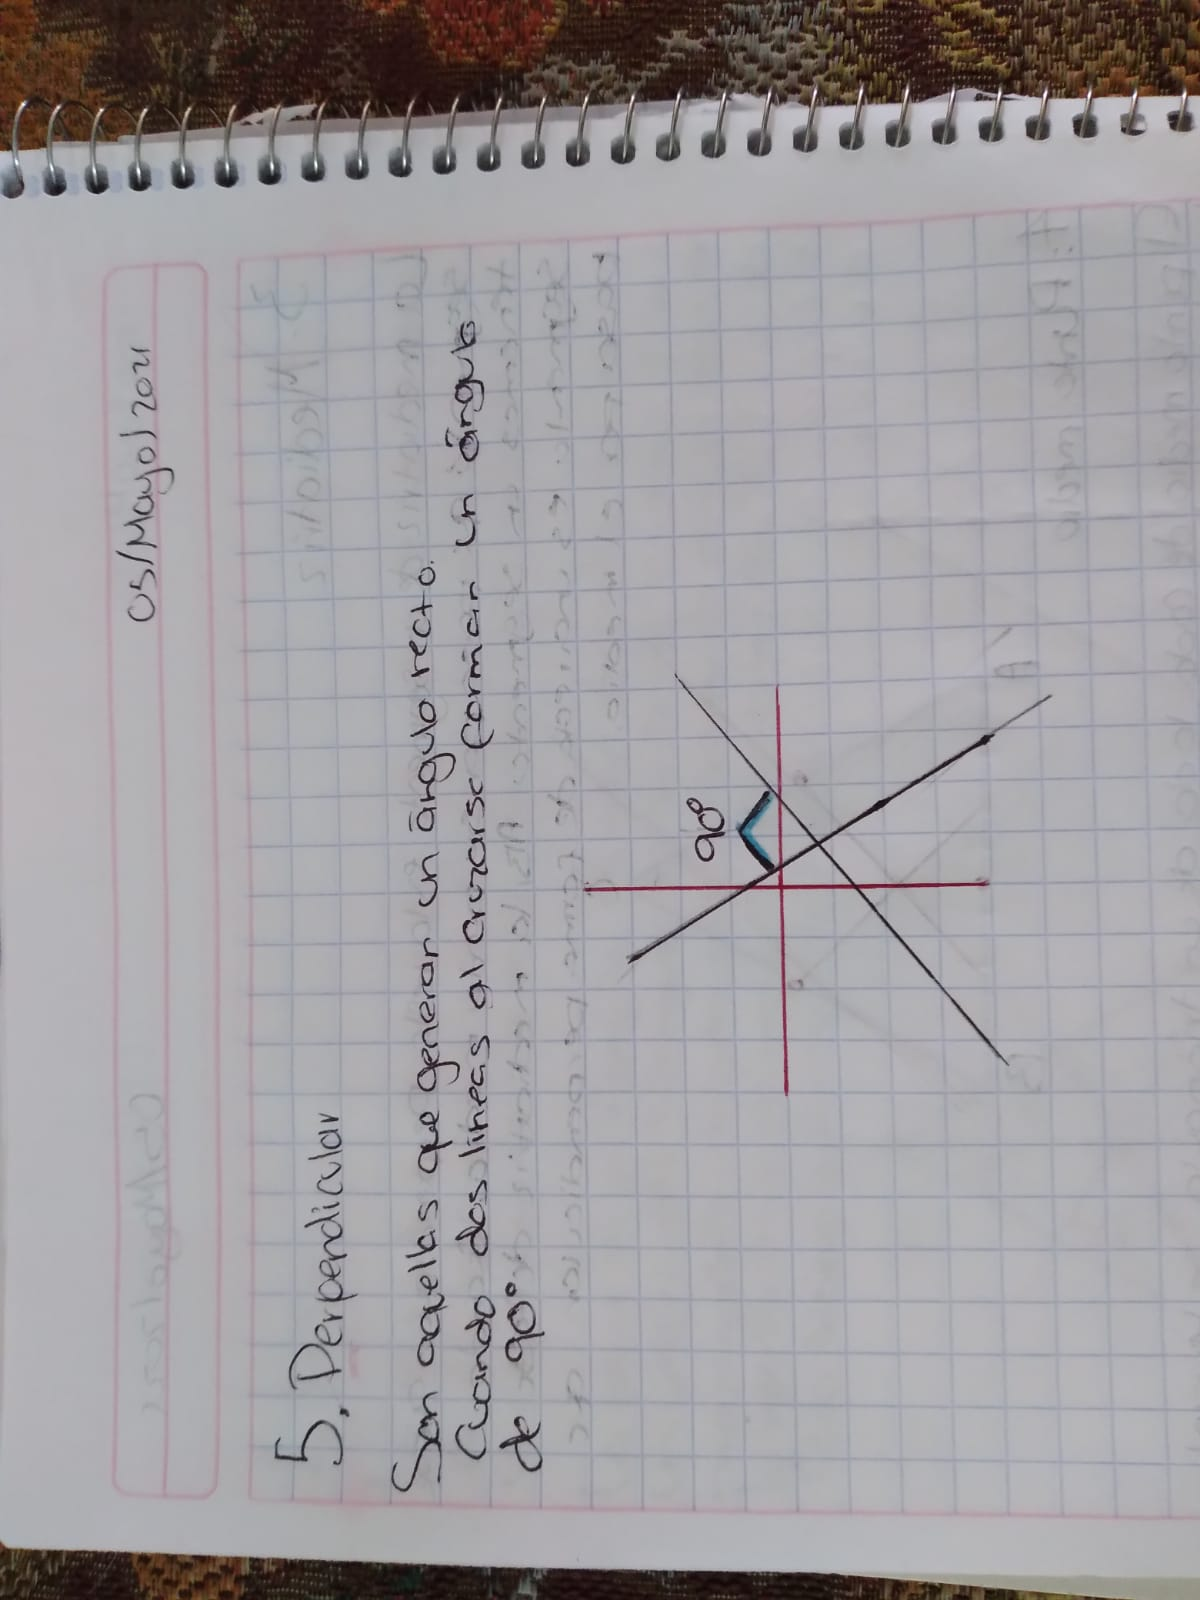 05/Mayo/2021
5. Perpendicular
Son aquellas que generan un ángulo recto.
Cuando dos lineas al cruzarse forman un ángulo
de 90°
90°